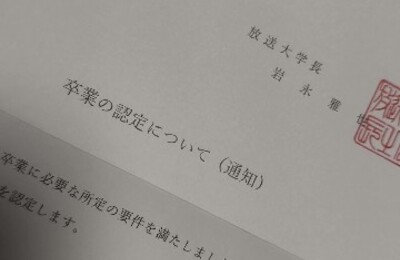 放送大学長
岩永雅也
卒業の認定について（通知）
卒業に必要な所定の要件を満たしまし
を認定します。